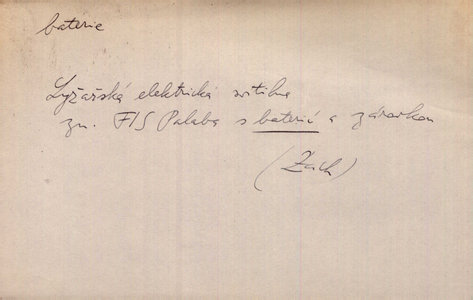 baterie
Lyžařská elektrická svítilna
zn. FIS Palaba s baterií a žárovkou
(Zach)